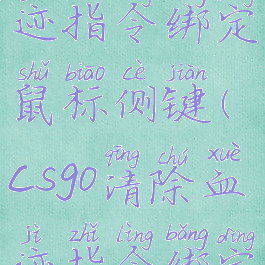 迹指令绑定
shǔ biāo cè jiàn
鼠标侧键(
qīng chú xuè
csgo清除血
jì zhǐ lìng bǎng dìng
迹指令绑定